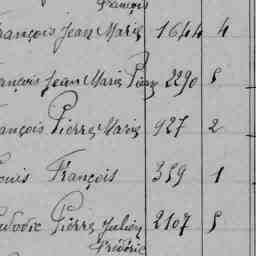 François
François Jean Marie 1644 4
François Jean Marie Pierre 2290 5
François Pierre Marie 927 2
Louis François 359 1
Pierre Julien 2107 5
Frédéric